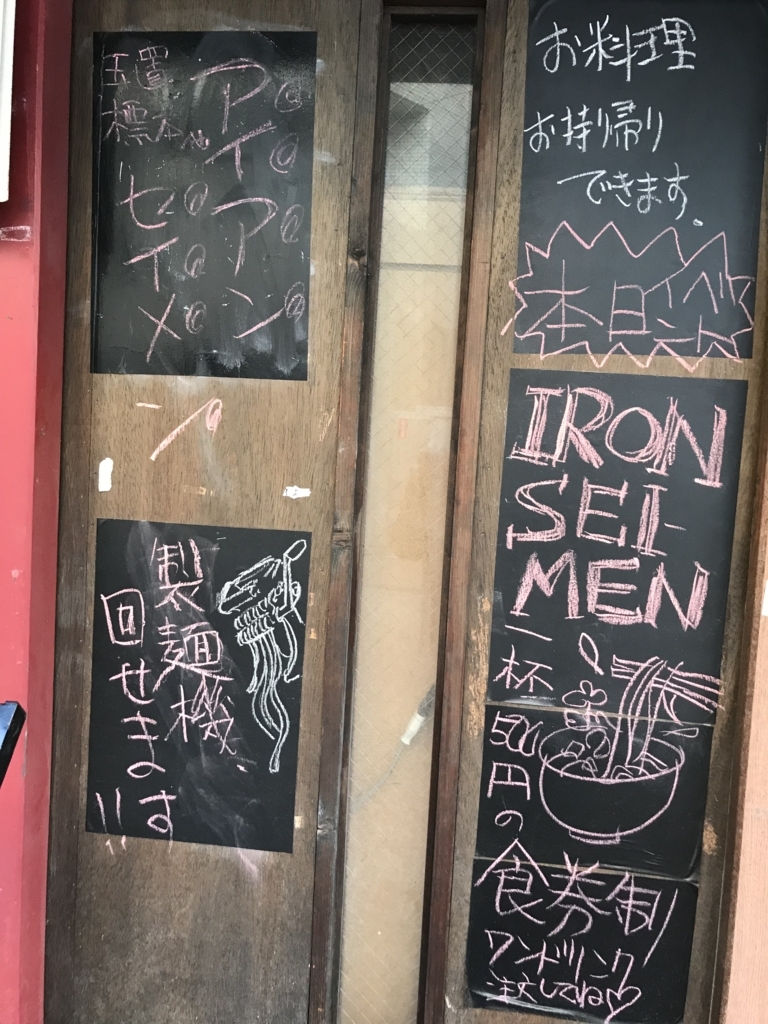 お料理
お持ち帰り
できます。
本日イベント
IRON
SEI-
MEN
一杯
500円の
食券制
ワンドリンク
注文してね♡
アイアン
セイメン
玉置
標本
製麺機
回せます!!